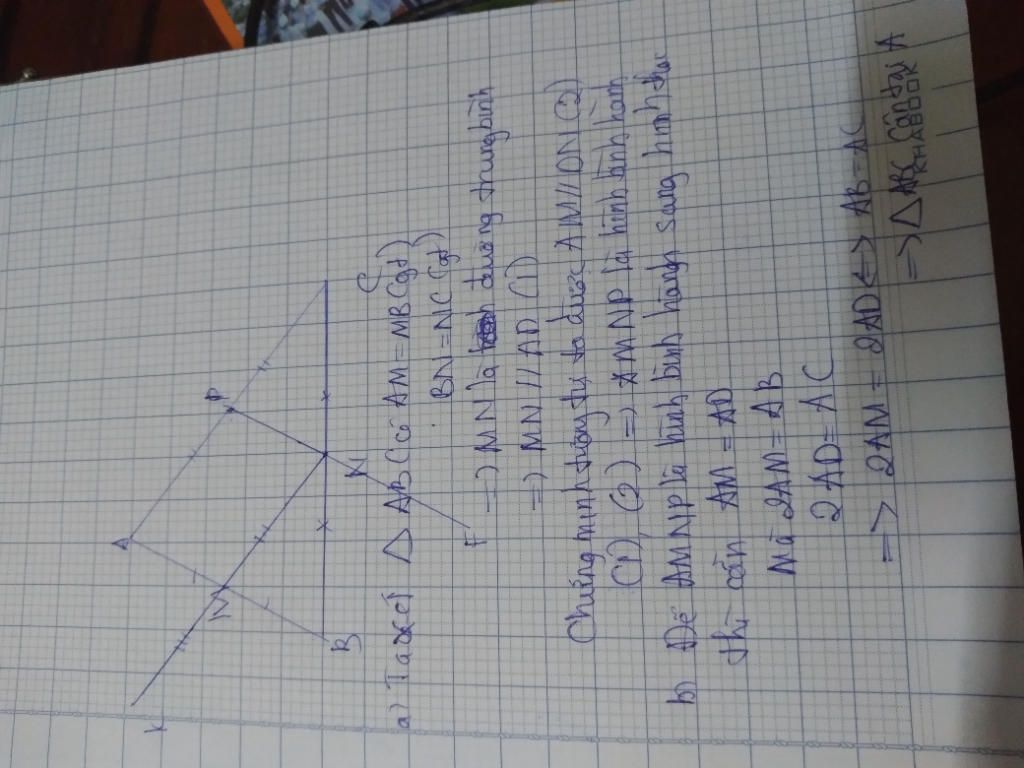 A
K
M
P
B
N
C
F
a) Ta xét △ ABC có AM = MB (gt)
BN = NC (gt)
=> MN là đường trung bình
=> MN // AD (1)
Chứng minh tương tự ta được AM // DN (2)
(1), (2) => AMNP là hình bình hành
b) Để AMNP là hình bình hành sang hình thoi
thì cần AM = AD
Mà 2AM = AB
2AD = AC
=> 2AM = 2AD <=> AB = AC
=> △ ABC cân tại A
KHABOOK